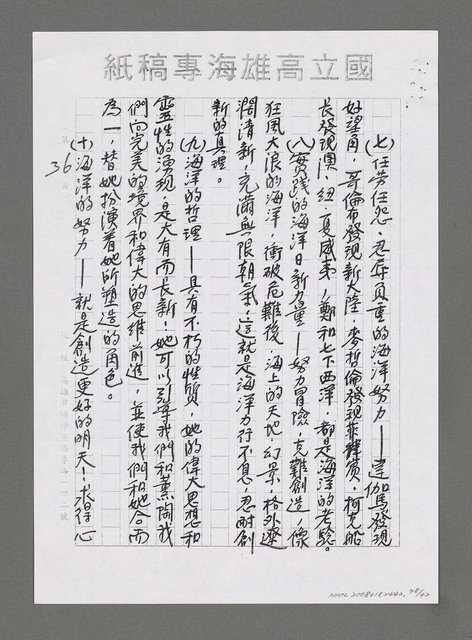 國立高雄海專稿紙
(七)任勞任怨，忍辱負重的海洋努力——達伽馬發現
好望角，哥倫布發現新大陸，麥哲倫發現菲律賓，柯克船
長發現澳、紐、夏威夷，鄭和七下西洋，都是海洋的考驗。
(八)實踐的海洋日新力量——努力冒險，克難創造，像
狂風大浪的海洋，衝破危難後，海上的天地、幻景，格外遼
濶清新，充滿無限朝氣，這就是海洋力行不息，忍耐創
新的真理。
(九)海洋的哲理——具有不朽的性質，她的偉大思想和
靈性的湧現，是大有而長新，她可以領導我們和薰陶我
們向完美的境界和偉大的思維前進，並使我們和她合而
為一，替她扮演着她所塑造的角色。
(十)海洋的努力——就是創造更好的明天，求得心
36
NMTL20080182442, 38/42